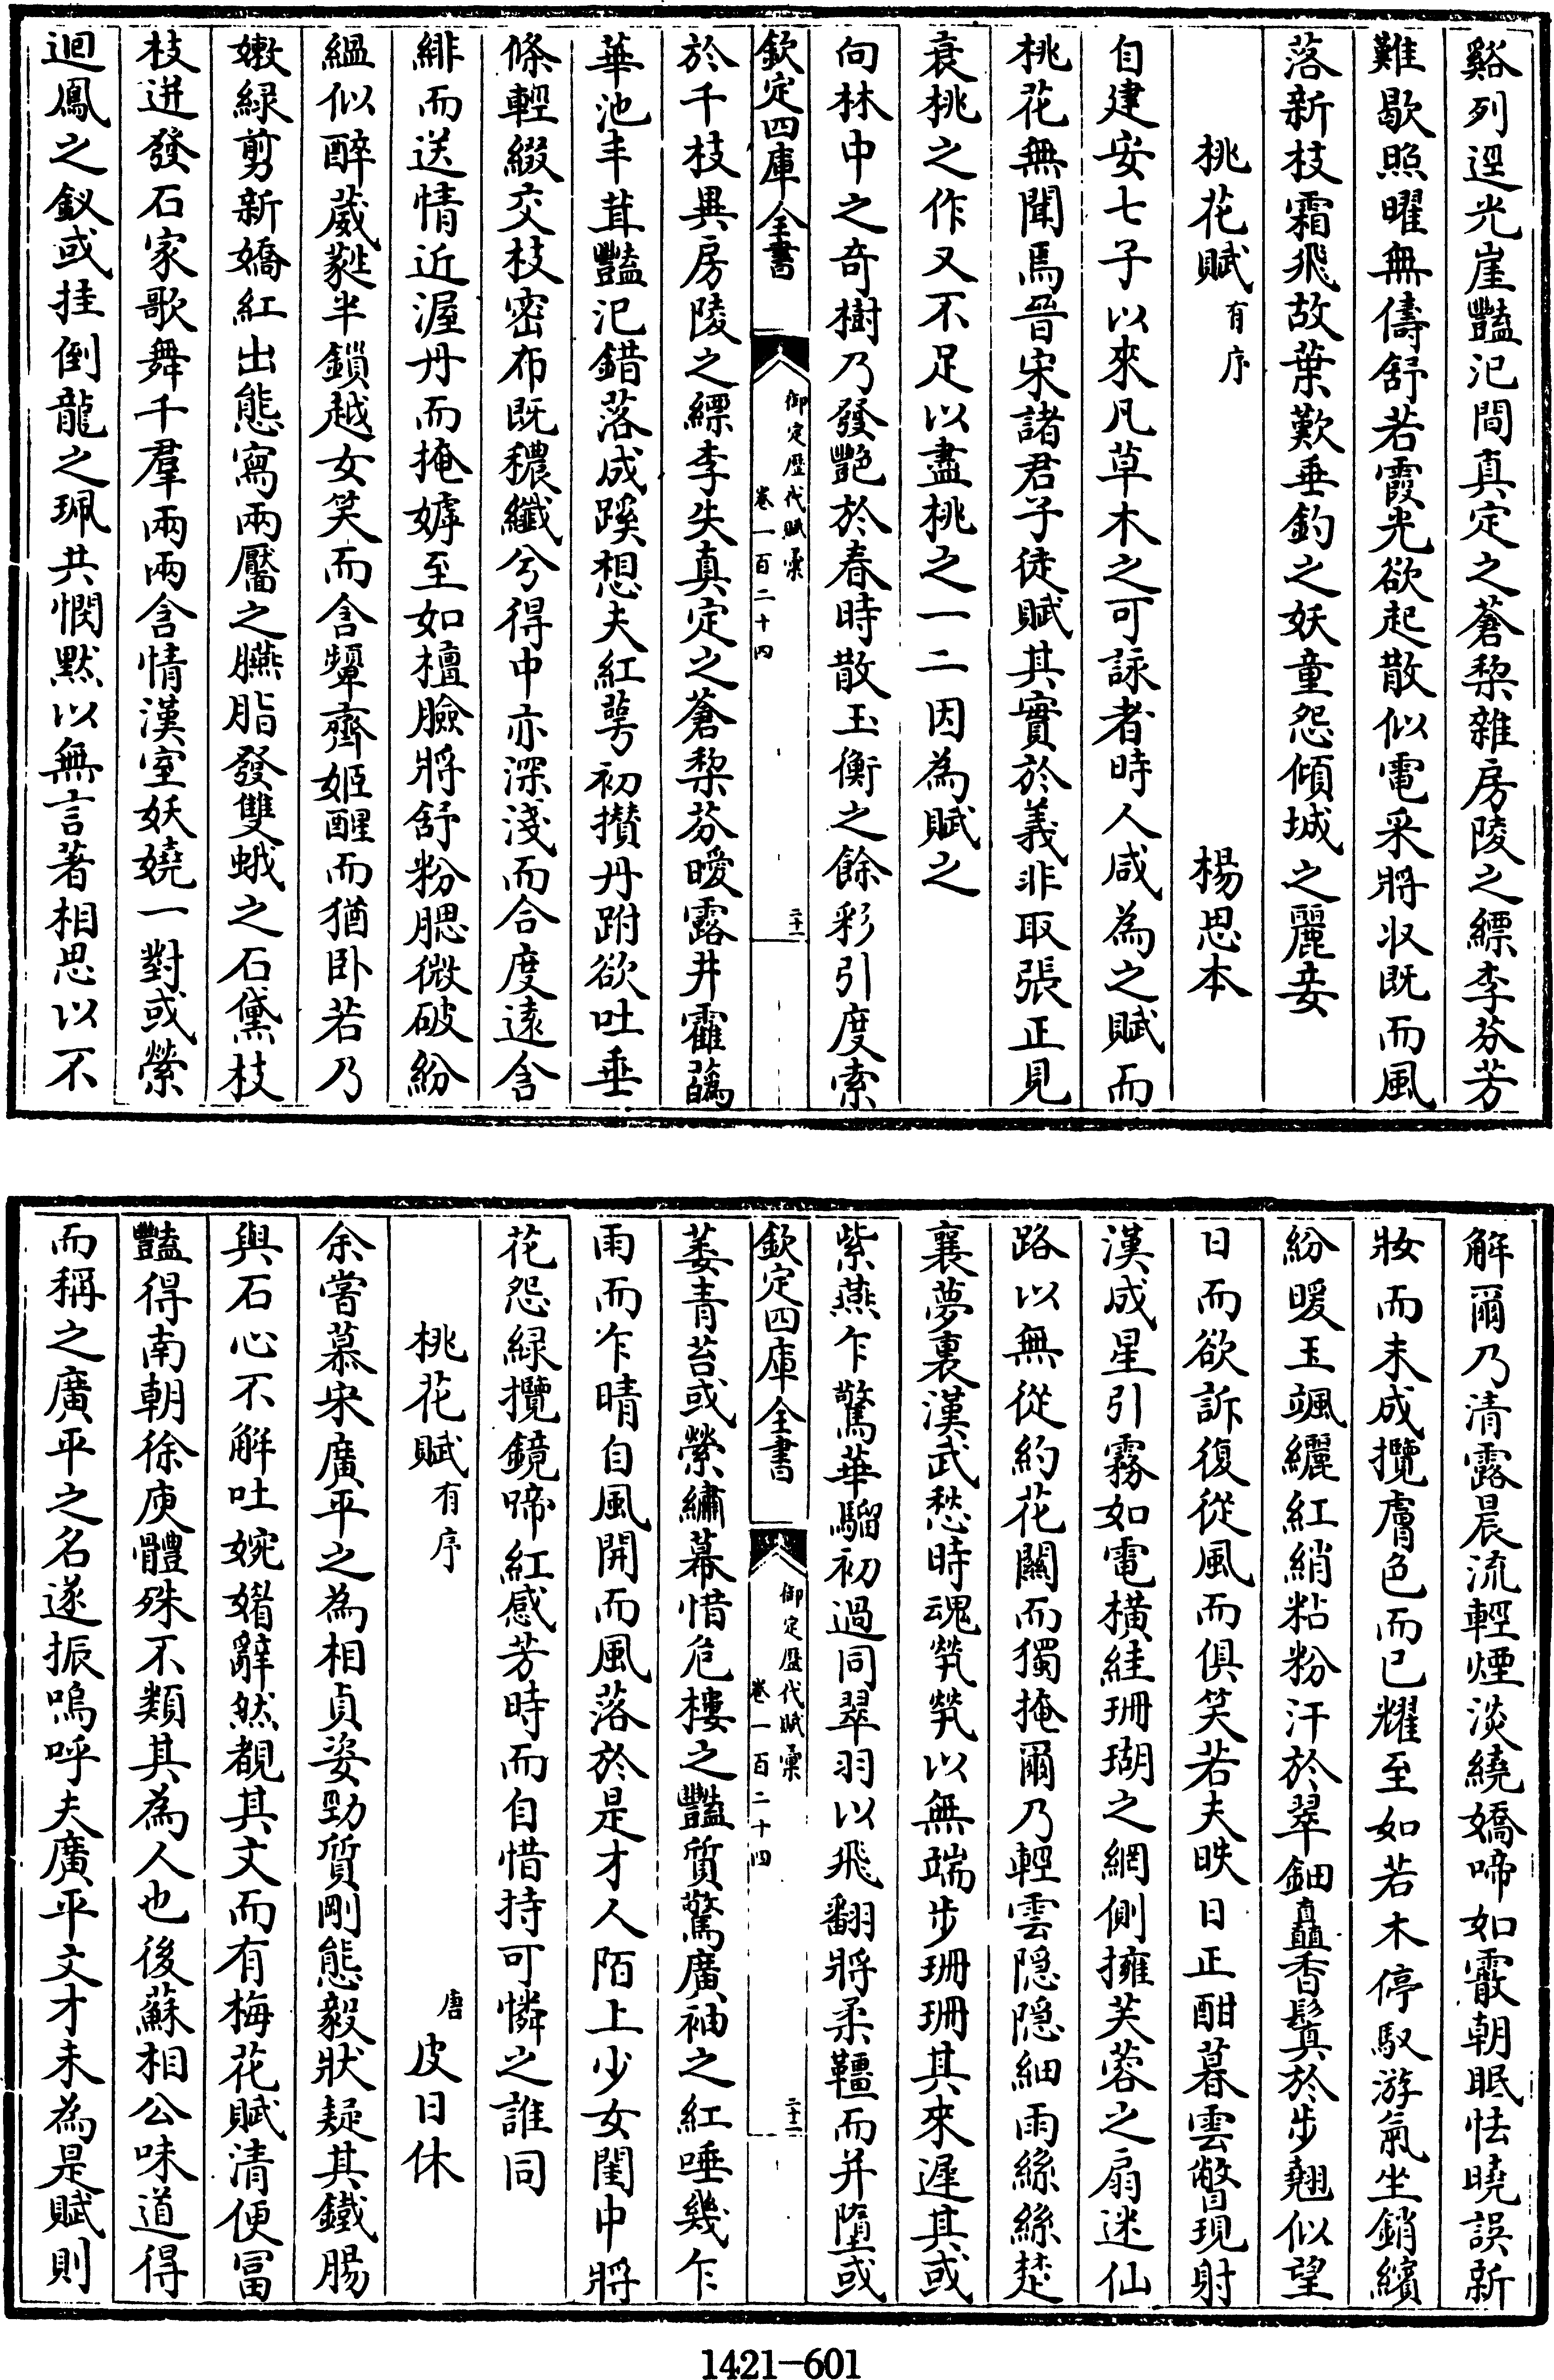 谿列逕光崖豔汜間真定之蒼棃雜房陵之縹李芬芳
難歇照曜無儔舒若霞光欲起散似電采將收既而風
落新枝霜飛故葉歎垂釣之妖童怨傾城之麗妾
桃花賦有序 楊思本
自建安七子以來凡草木之可詠者時人咸為之賦而
桃花無聞焉晉宋諸君子徒賦其實於義非取張正見
衰桃之作又不足以盡桃之一二因為賦之
向林中之奇樹乃發艷於春時散玉衡之餘彩引度索
欽定四庫全書 御定歷代賦彙 卷一百二十四 二十一
於千枝異房陵之縹李失真定之蒼棃芬曖露井霍蘤
華池丰茸豔汜錯落成蹊想夫紅萼初攢丹跗欲吐垂
條輕綴交枝密布既穠纖兮得中亦深淺而合度遠含
緋而送情近渥丹而掩嫭至如檀臉將舒粉腮微破紛
縕似醉葳蕤半鎖越女笑而含顰齊姬醒而猶卧若乃
嫩綠剪新嬌紅出態寫兩靨之臙脂發雙蛾之石黛枝
枝迸發石家歌舞千羣兩兩含情漢室妖嬈一對或縈
迴鳳之釵或挂倒龍之珮共憫默以無言著相思以不
解爾乃清露晨流輕煙淡繞嬌啼如霰朝眠怯曉誤新
妝而未成攬膚色而已耀至如若木停馭游氣坐銷繽
紛暖玉颯纚紅綃粘粉汗於翠鈿矗香鬟於步翹似望
日而欲訴復從風而俱笑若夫昳日正酣暮雲瞥現射
漢成星引霧如電橫絓珊瑚之網側擁芙蓉之扇迷仙
路以無從約花關而獨掩爾乃輕雲隱隱細雨絲絲楚
襄夢裏漢武愁時魂煢煢以無端步珊珊其來遲其或
紫燕乍驚華騮初過同翠羽以飛翻將柔韁而并墮或
欽定四庫全書 御定歷代賦彙 卷一百二十四 二十二
萎青苔或縈繡幕惜危樓之豔質驚廣袖之紅唾幾乍
雨而乍晴自風開而風落於是才人陌上少女閨中將
花怨綠攬鏡啼紅感芳時而自惜持可憐之誰同
桃花賦有序 唐皮日休
余嘗慕宋廣平之為相貞姿勁質剛態毅狀疑其鐵腸
與石心不解吐婉媚辭然覩其文而有梅花賦清便富
豔得南朝徐庾體殊不類其為人也後蘇相公味道得
而稱之廣平之名遂振嗚呼夫廣平文才未為是賦則
1421-601